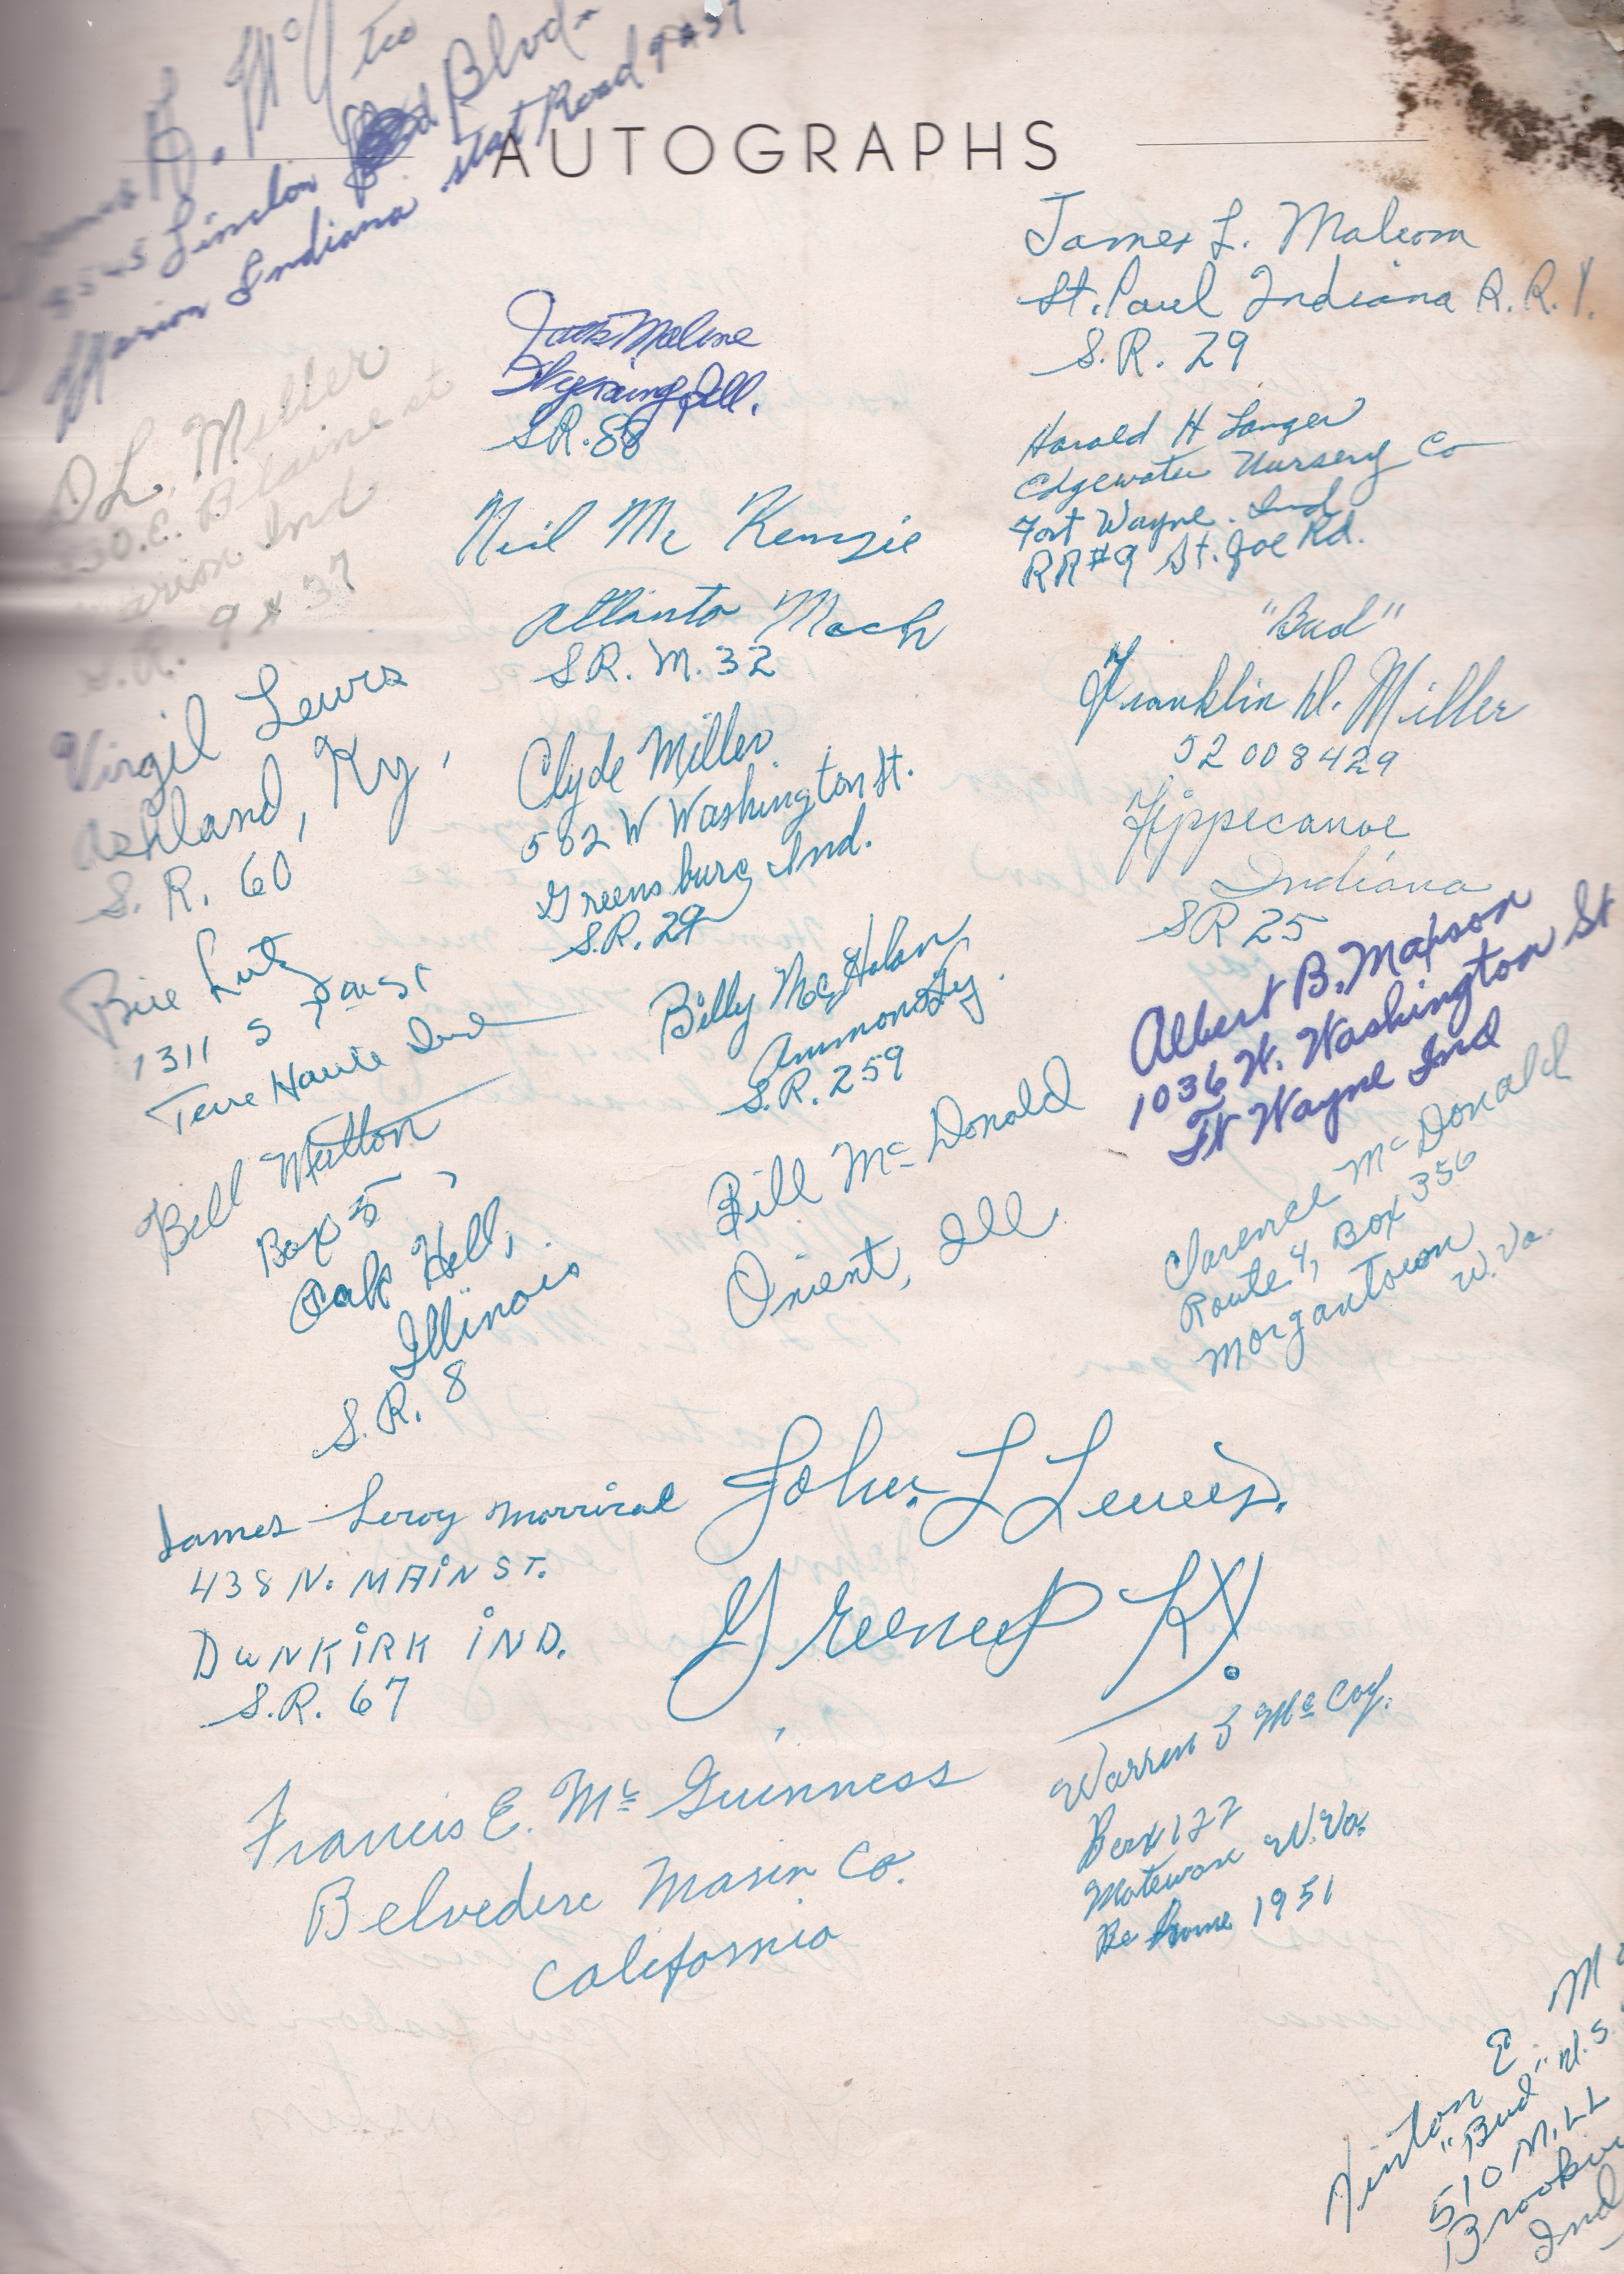 AUTOGRAPHS
Lincoln Blvd.
Marion Indiana stat Road 9 & 37
D L. Miller
Blaine st
Ind
9 & 37
Virgil Lewis
Ashland, Ky.
S. R. 60
Bill Lutz
1311 S
Terre Haute Ind
Bill Mutton
Box 5,
Oak Hill,
Illinois
S. R. 8
James Leroy Morrical
438 N. MAIN ST.
DUNKIRK IND.
S. R. 67
Francis E. Mc Guinness
Belvedere Marin Co.
California
Jack Malone
Wyoming, Ill.
SR. 88
Neil Mc Kenzie
Atlanta Mich
S R. M. 32
Clyde Miller
502 W Washington St.
Greensburg Ind.
S.R. 29
Billy
Ammons Ky.
S. R. 259
Bill Mc Donald
Orient, Ill.
John. L Lewis.
Greenup Ky.
James L. Malcom
St. Paul Indiana R. R. 1.
S. R. 29
Harold H Langer
Edgewater Nursery Co
Fort Wayne. Ind
RR #9 St. Joe Rd.
"Bud"
Franklin D. Miller
52 008429
Tippecanoe
Indiana
SR 25
Albert B. Maxson
1036 W. Washington St
Ft Wayne Ind
Clarence Mc Donald
Route 4, Box 356
Morgantown
W. Va.
Warren Mc Coy.
Box 122
Matewan W. Va.
Be home 1951
Vinton E. M
"Bud"
510 Mill
Ind